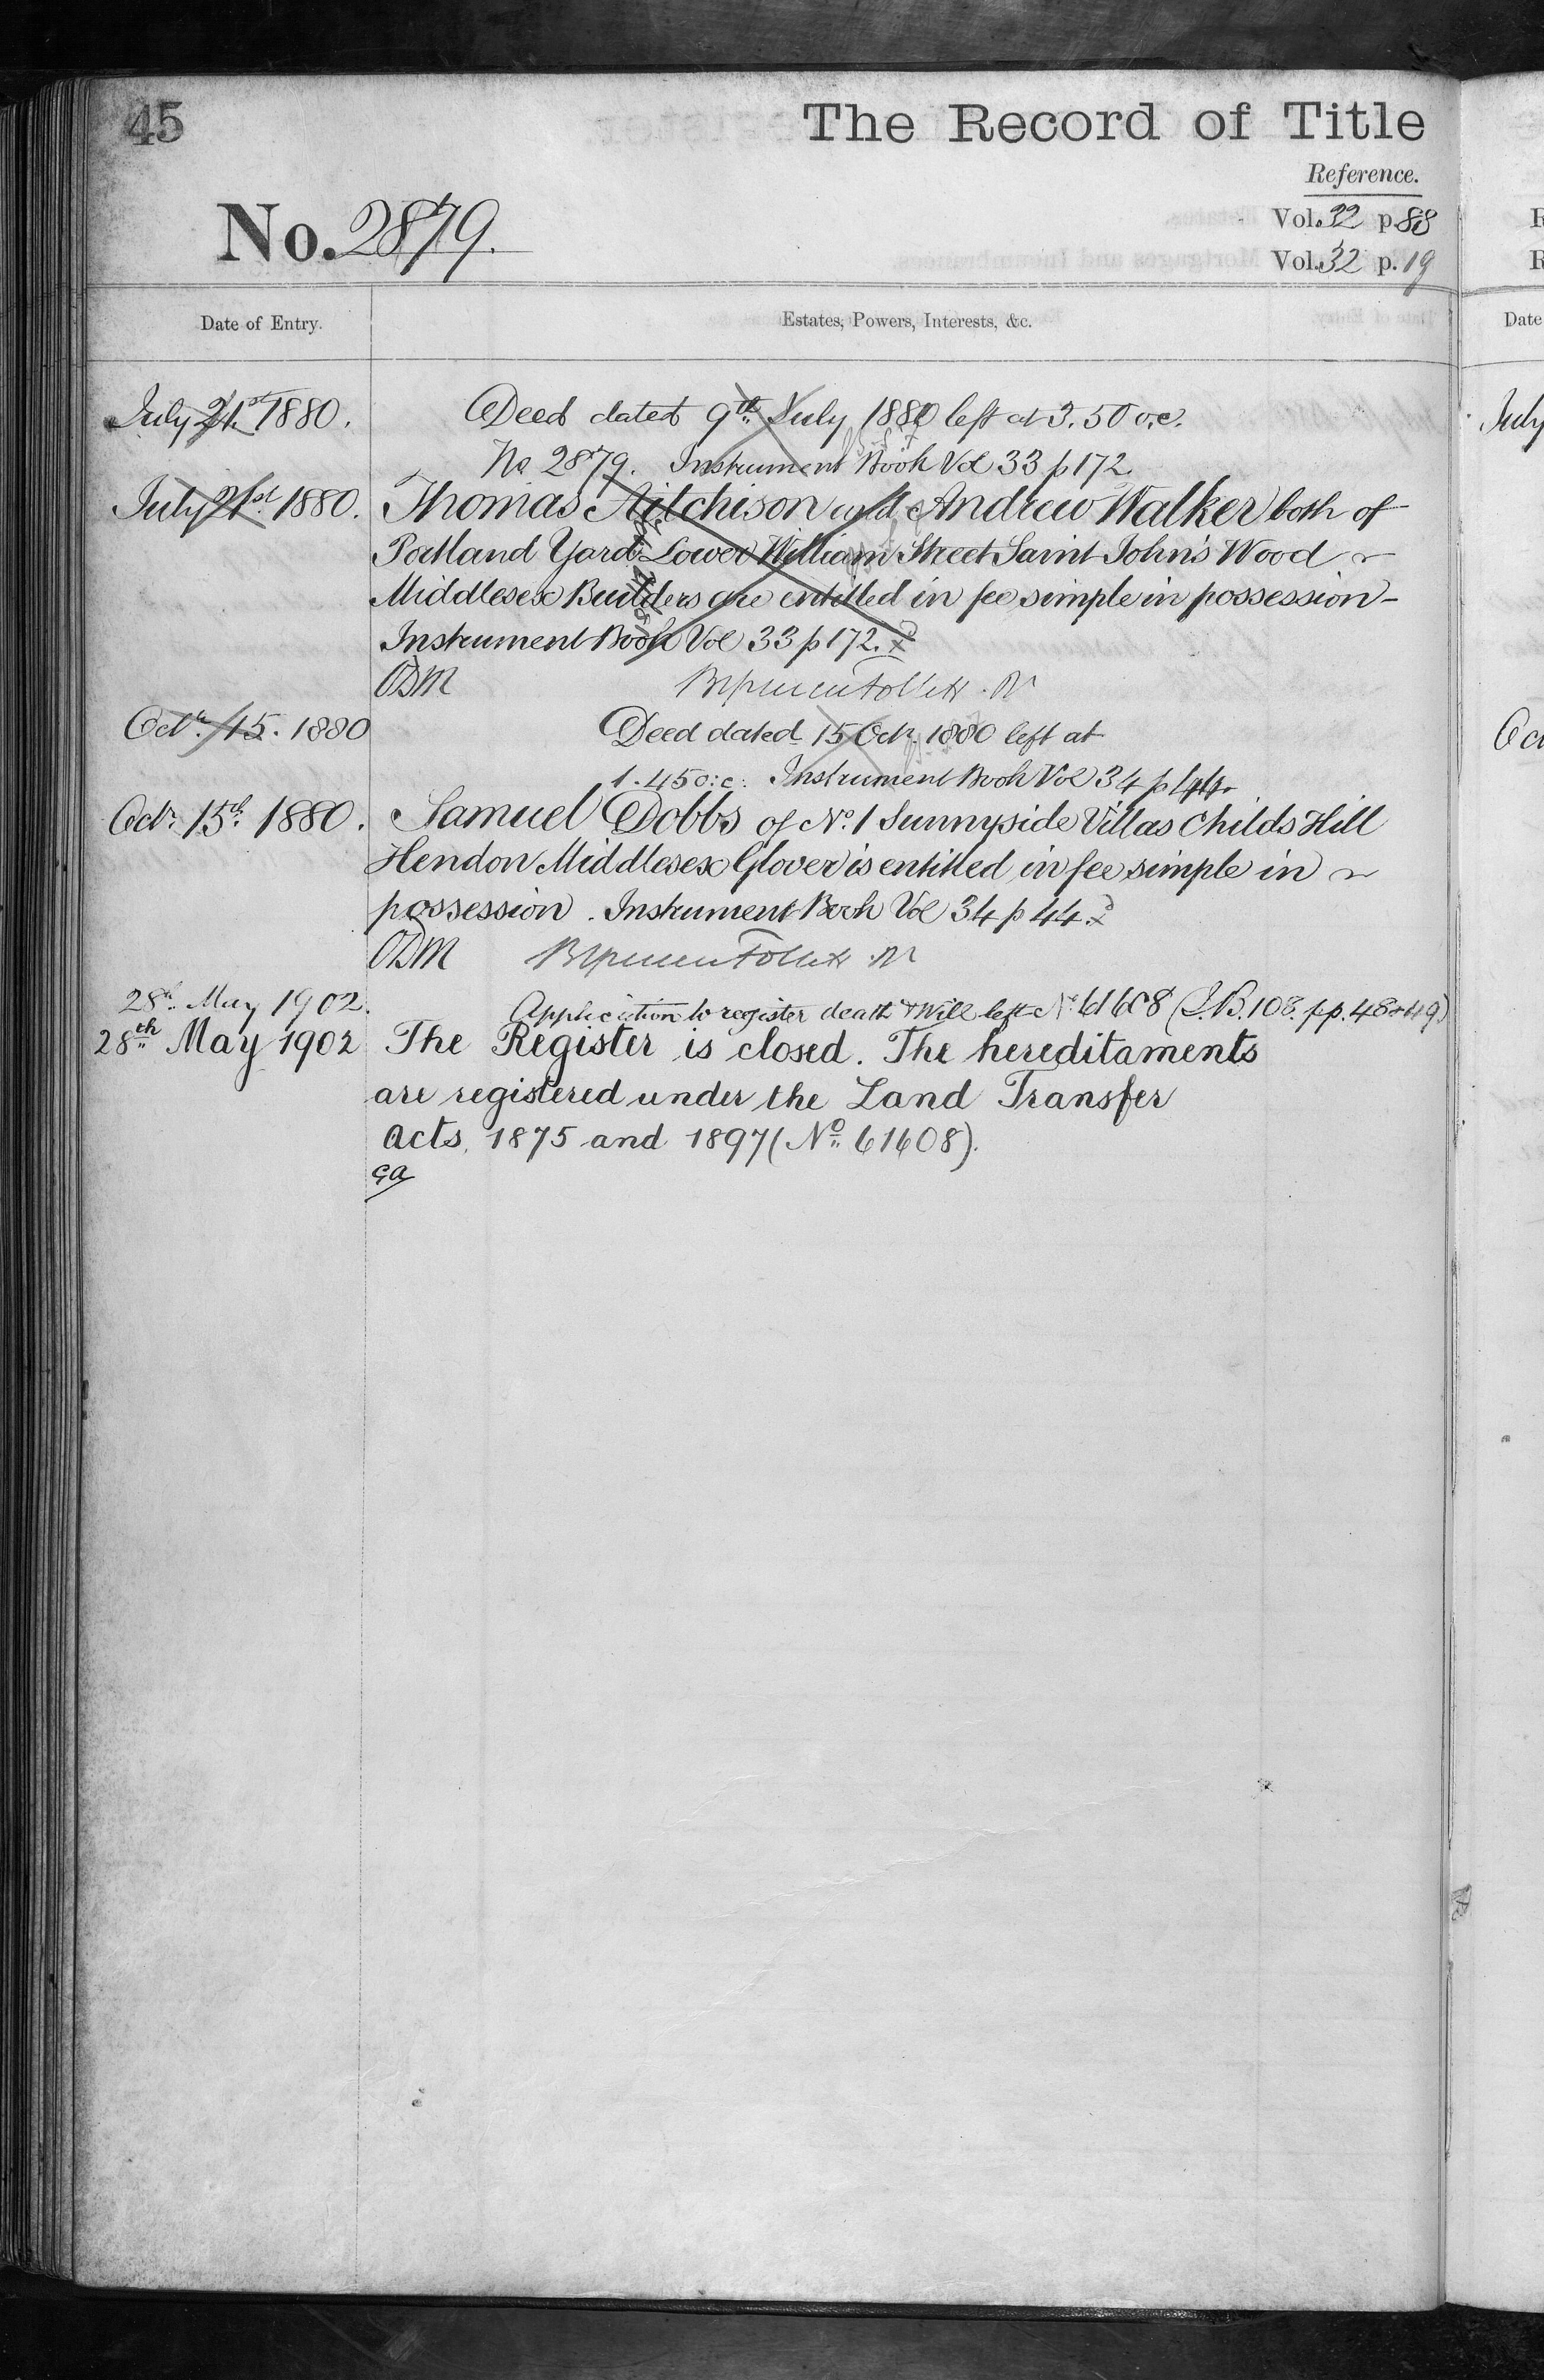 45
The Record of Title
Reference.
No. 2879.
Vol. 32 p. 88
Vol. 32 p. 19
Date of Entry.
Estates, Powers, Interests, &c.
July 21st 1880.
Deed dated 9th July 1880 left at 3.50 o.c.
No 2879. Instrument Book Vol 33 p 172
July 21st 1880.
Thomas Aitchison and Andrew Walker both of
Portland Yard Lower William Street Saint John's Wood
Middlesex Builders are entitled in fee simple in possession -
Instrument Book Vol 33 p 172.
ODM
Octr. 15. 1880
Deed dated 15 Octr. 1880 left at
1.45 o:c: Instrument Book Vol 34 p 44.
Octr. 15th. 1880.
Samuel Dobbs of No. 1 Sunnyside Villas Childs Hill
Hendon Middlesex Glover is entitled in fee simple in
possession. Instrument Book Vol 34 p 44.
ODM
28th. May 1902.
Application to register death & Will left No. 61608 (I.B. 108. pp. 48 & 49)
28th May 1902
The Register is closed. The hereditaments
are registered under the Land Transfer
Acts, 1875 and 1897 (No. 61608).
Date
July